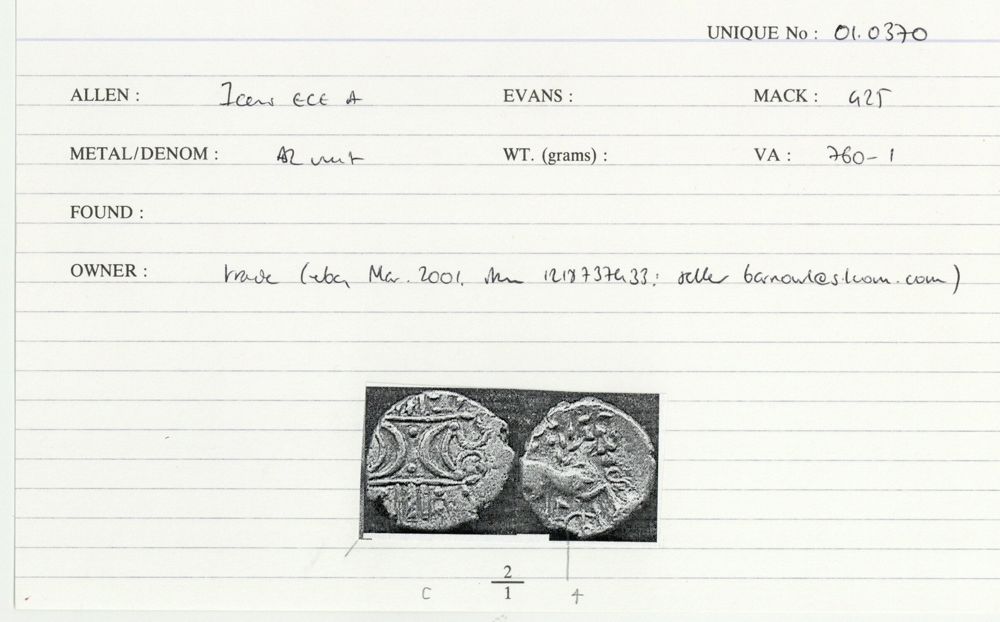 UNIQUE No : 01.0370
ALLEN : Iceni ECE A EVANS : MACK : 425
METAL/DENOM : AR unit WT. (grams) : VA : 760-1
FOUND :
OWNER : trade (eBay, Mar. 2001, item 1218737433: seller barnowl@s.com)
2
C 1 4